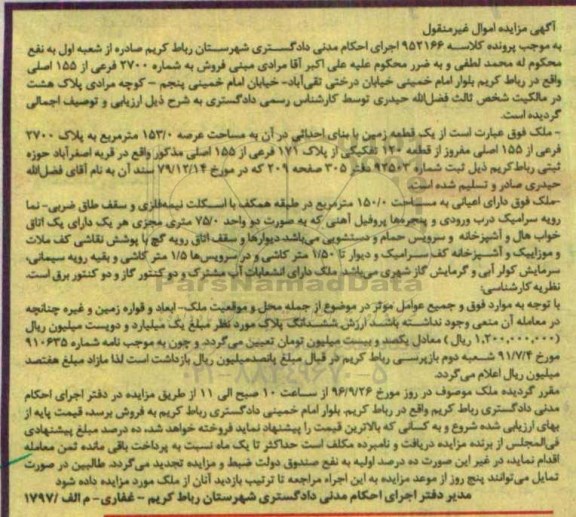 آگهی مزایده اموال غیرمنقول
به موجب پرونده کلاسه ۹۵۲۱۶۶ اجرای احکام مدنی دادگستری شهرستان رباط کریم صادره از شعبه اول به نفع
محکوم له محمد لطفی و به ضرر محکوم علیه علی اکبر آقا مرادی مبنی فروش به شماره ۲۷۰۰ فرعی از ۱۵۵ اصلی
واقع در رباط کریم بلوار امام خمینی خیابان درختی تقی‌آباد- خیابان امام خمینی پنجم - کوچه مرادی پلاک هشت
در مالکیت شخص ثالث فضل‌الله حیدری توسط کارشناس رسمی دادگستری به شرح ذیل ارزیابی و توصیف اجمالی
گردیده است.
- ملک فوق عبارت است از یک قطعه زمین با بنای احداثی در آن به مساحت عرصه ۱۵۳/۰ مترمربع به پلاک ۲۷۰۰
فرعی از ۱۵۵ اصلی مفروز از قطعه ۱۲۰ تفکیکی از پلاک ۱۷۱ فرعی از ۱۵۵ اصلی مذکور واقع در قریه اصغرآباد حوزه
ثبتی رباط‌کریم ذیل ثبت شماره ۹۲۵۰۳ دفتر ۳۰۵ صفحه ۲۰۹ که در مورخ ۷۹/۱۲/۱۴ سند آن به نام آقای فضل‌الله
حیدری صادر و تسلیم شده است.
-ملک فوق دارای اعیانی به مساحت ۱۵۰/۰ مترمربع در طبقه همکف با اسکلت نیمه‌فلزی و سقف طاق ضربی- نما
رویه سرامیک درب ورودی و پنجره‌ها پروفیل آهنی که به صورت دو واحد ۷۵/۰ متری مجزی هر یک دارای یک اتاق
خواب هال و آشپزخانه و سرویس حمام و دستشویی می‌باشد دیوارها و سقف اتاق رویه گچ با پوشش نقاشی کف ملات
و موزاییک و آشپزخانه کف سرامیک و دیوار تا ۱/۵۰ متر کاشی و در سرویس‌ها ۱/۵ متر کاشی و بقیه رویه سیمانی،
سرمایش کولر آبی و گرمایش گاز شهری می‌باشد. ملک دارای انشعابات آب مشترک و دو کنتور گاز و دو کنتور برق است.
نظریه کارشناسی:
با توجه به موارد فوق و جمیع عوامل موثر در موضوع از جمله محل و موقعیت ملک- ابعاد و قواره زمین و غیره چنانچه
در معامله آن منعی وجود نداشته باشد ارزش ششدانگ پلاک مورد نظر مبلغ یک میلیارد و دویست میلیون ریال
(۱,۲۰۰,۰۰۰,۰۰۰ ریال) معادل یکصد و بیست میلیون تومان تعیین می‌گردد. و چون به موجب نامه شماره ۹۱۰۶۳۵
مورخ ۹۱/۷/۴ شعبه دوم بازپرسی رباط کریم در قبال مبلغ پانصدمیلیون ریال بازداشت است لذا مازاد مبلغ هفتصد
میلیون ریال اعلام می‌گردد.
مقرر گردیده ملک موصوف در روز مورخ ۹۶/۹/۲۶ از ساعت ۱۰ صبح الی ۱۱ از طریق مزایده در دفتر اجرای احکام
مدنی دادگستری رباط کریم واقع در رباط کریم بلوار امام خمینی دادگستری رباط کریم به فروش برسد، قیمت پایه از
بهای ارزیابی شده شروع و به کسانی که بالاترین قیمت را پیشنهاد نماید فروخته خواهد شد، ده درصد مبلغ پیشنهادی
فی‌المجلس از برنده مزایده دریافت و نامبرده مکلف است حداکثر تا یک ماه نسبت به پرداخت باقی مانده ثمن معامله
اقدام نماید، در غیر این صورت ده درصد اولیه به نفع صندوق دولت ضبط و مزایده تجدید می‌گردد. طالبین در صورت
تمایل می‌توانند پنج روز از موعد مزایده به این اجراء مراجعه تا ترتیب بازدید آنان از ملک مورد مزایده داده شود
مدیر دفتر اجرای احکام مدنی دادگستری شهرستان رباط کریم - غفاری- م الف /۱۷۹۷
ParsNamadData